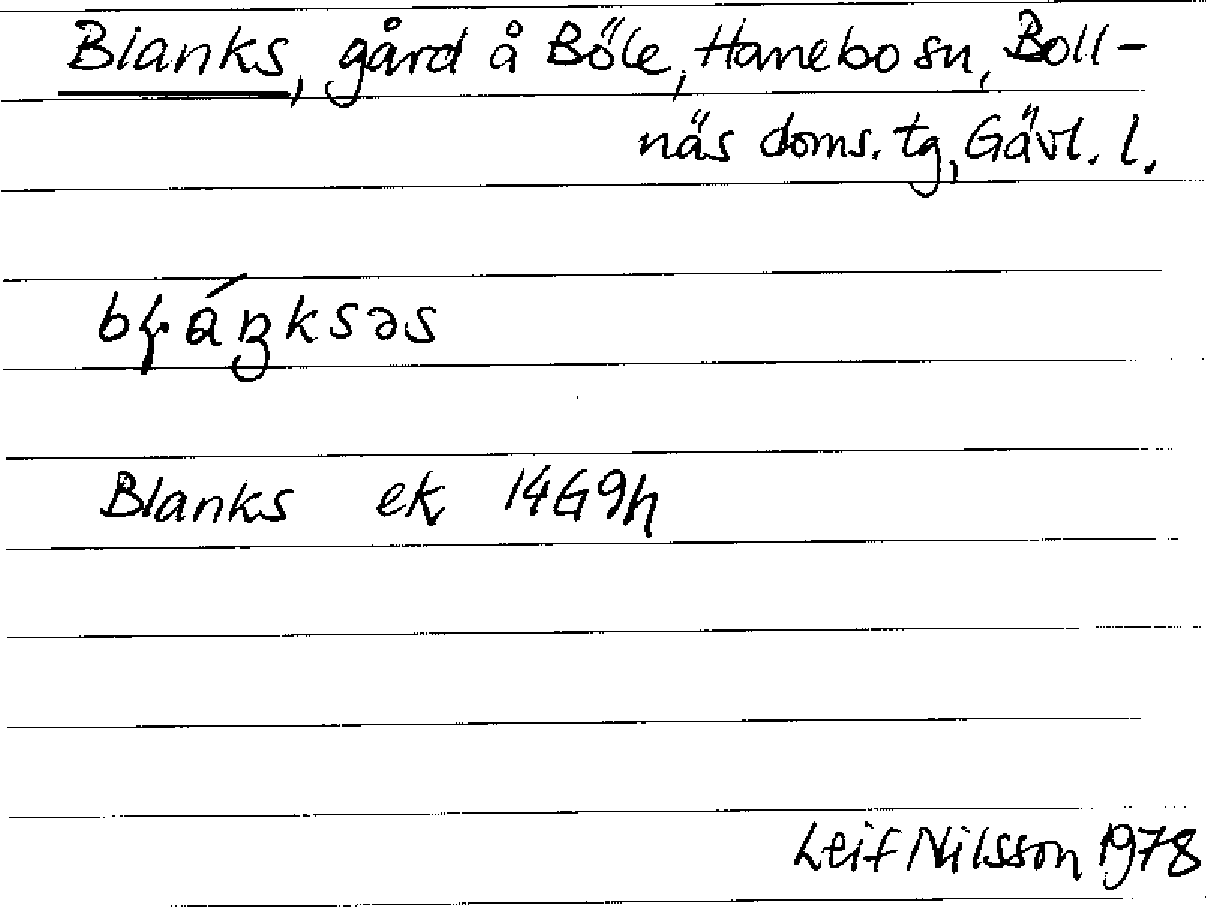 Blanks, gård å Böle, Hanebo sn, Boll-
näs doms. tg, Gävl. l.
Blanks ek 14G9h
Leif Nilsson 1978